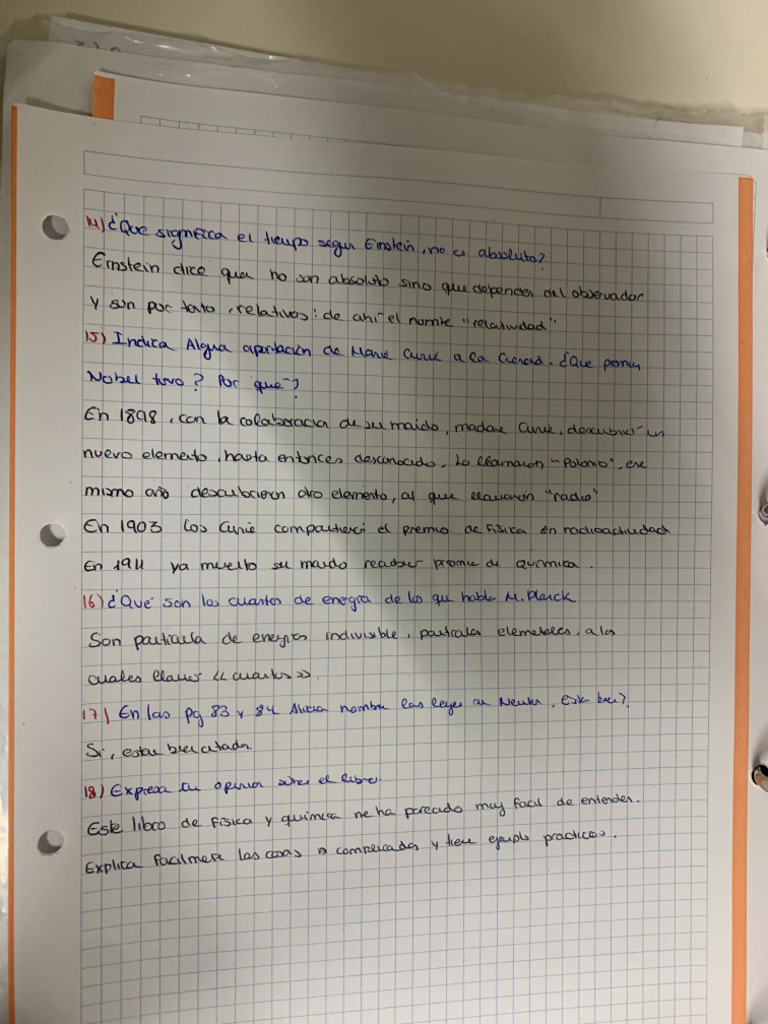 14) ¿Que significa el tiempo segun Einstein, no es absoluto?
Einstein dice que no son absoluto sino que dependen del observador
y son por tanto, relativos: de ahí el nombre "relatividad"
15) Indica Algua aportación de Marie Curie a la Ciencia. ¿Que premio
Nobel tuvo? Por que?
En 1898, con la colaboracia de su maido, madame Curie, descubrio un
nuevo elemento, hasta entonces desconocido, Lo llamaron "Polonio", ese
mismo año descubrieron otro elemento, al que llamaron "radio"
En 1903 los Curie compartieri el premio de Física en radioactividad
En 1911 ya muerto su marido premio de quimica.
16) ¿Qué son los cuantos de energia de lo que habla M. Planck
Son particula de energias indivisible, particulas elementales, a las
cuales llamo «cuantos».
17) En las pg 83 y 84 Alicia nombra las leyes de Newton, Esta bien?
Si, estan bien citadas.
18) Expresa tu opinion sobre el libro.
Este libro de Física y quimica me ha parecido muy facil de entender.
Explica facilmente las cosas complicadas y tiene ejemplo practicos.